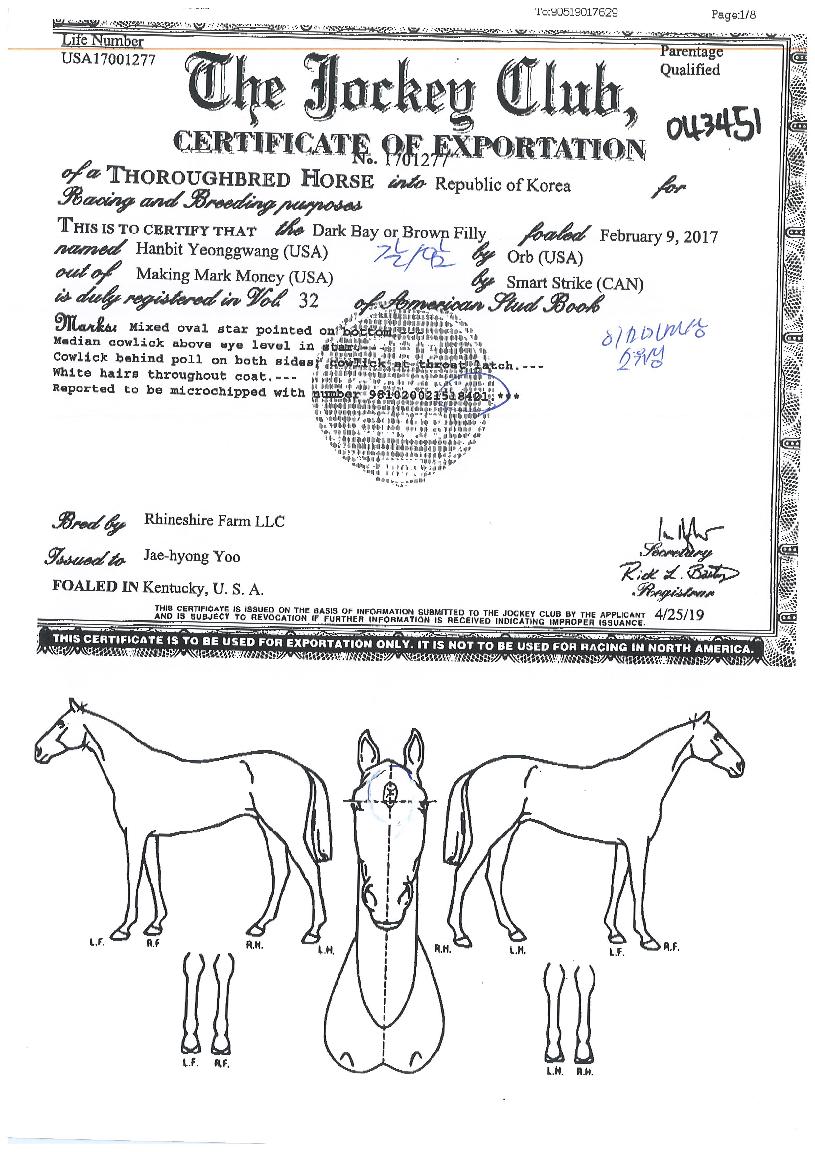 To:90519017629 Page:1/8
Life Number
USA17001277
Parentage
Qualified
The Jockey Club,
043451
CERTIFICATE OF EXPORTATION
No. 1701277
of a THOROUGHBRED HORSE into Republic of Korea for
Racing and Breeding purposes
THIS IS TO CERTIFY THAT the Dark Bay or Brown Filly foaled February 9, 2017
named Hanbit Yeonggwang (USA) by Orb (USA)
out of Making Mark Money (USA) by Smart Strike (CAN)
is duly registered in Vol. 32 of American Stud Book
Marks: Mixed oval star pointed on bottom
Median cowlick above eye level in star.---
Cowlick behind poll on both sides, cowlick at throat latch.---
White hairs throughout coat.---
Reported to be microchipped with number 981020021518421.***
Bred by Rhineshire Farm LLC
Issued to Jae-hyong Yoo
Secretary
Rick L. Bailey
Registrar
FOALED IN Kentucky, U. S. A.
THIS CERTIFICATE IS ISSUED ON THE BASIS OF INFORMATION SUBMITTED TO THE JOCKEY CLUB BY THE APPLICANT
AND IS SUBJECT TO REVOCATION IF FURTHER INFORMATION IS RECEIVED INDICATING IMPROPER ISSUANCE.
4/25/19
THIS CERTIFICATE IS TO BE USED FOR EXPORTATION ONLY. IT IS NOT TO BE USED FOR RACING IN NORTH AMERICA.
L.F. R.F. R.H. L.H. R.H. L.H. L.F. R.F.
L.F. R.F. L.H. R.H.